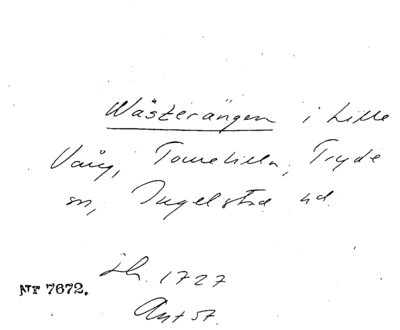 Wästerängen i Lille
Vång, Tomelilla, Tryde
sn, Ingelstad hd.
Sh. 1727
Nr 7672.
Ant 57.